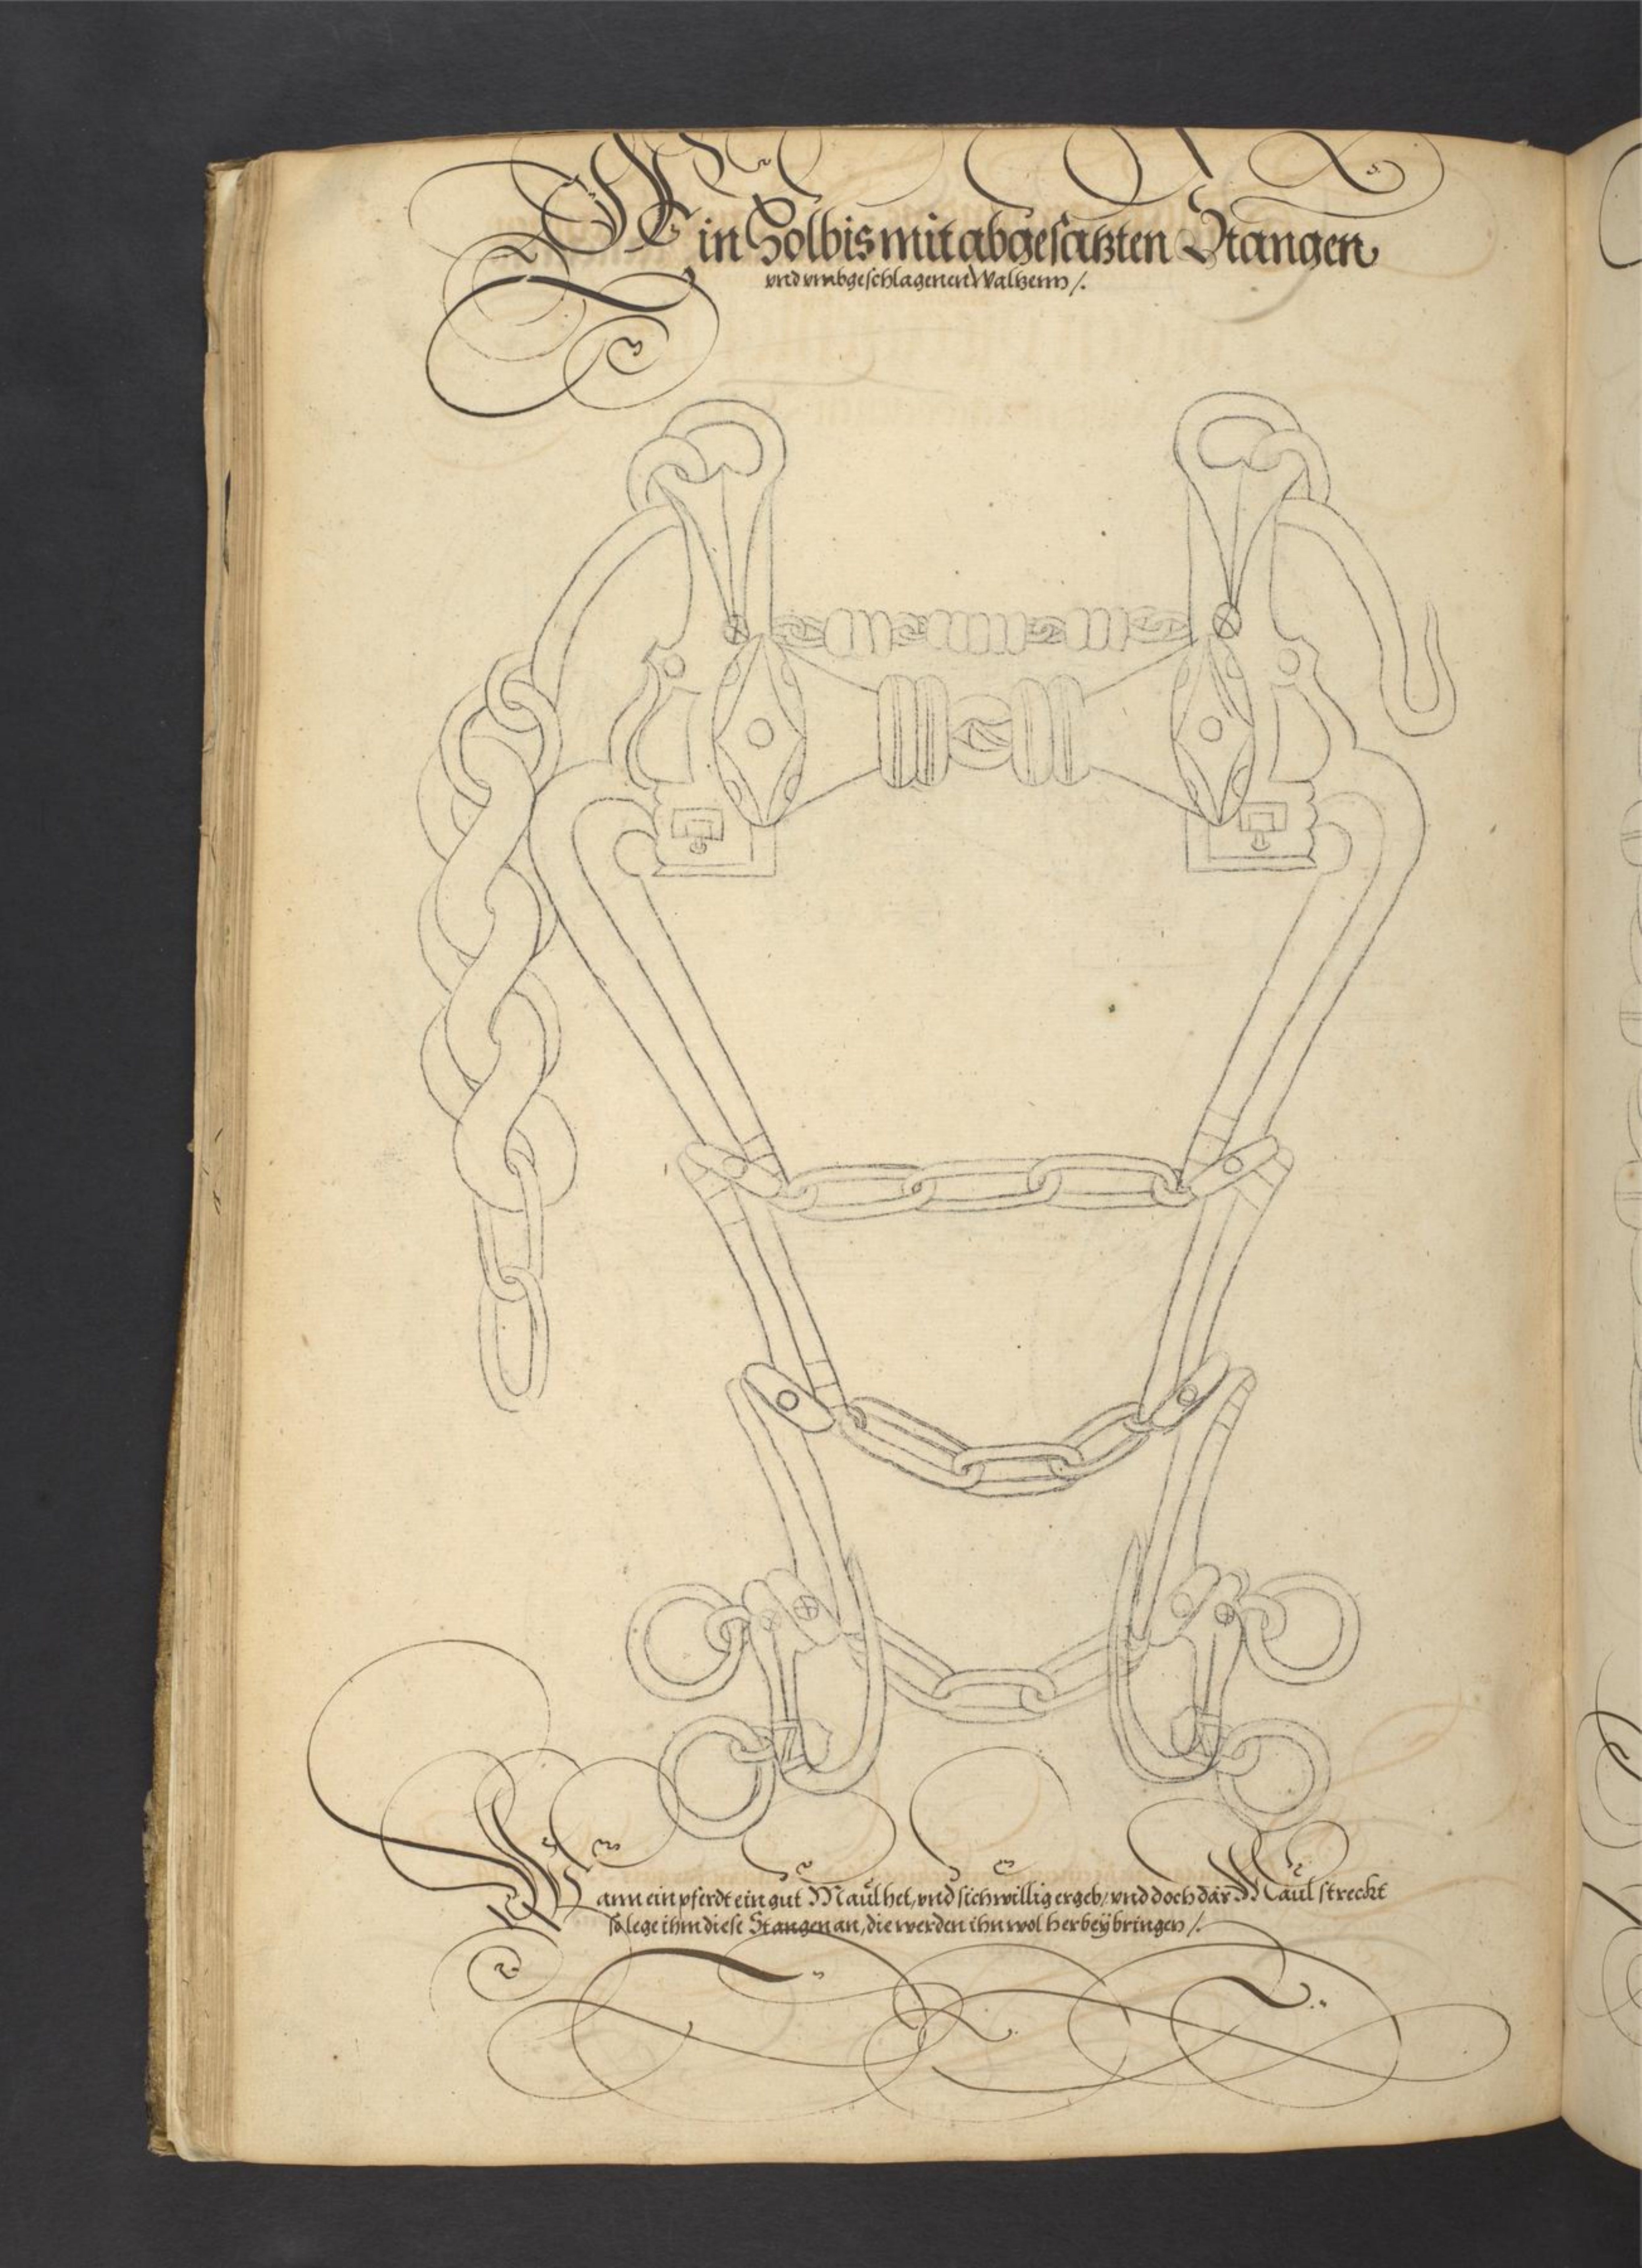 Ein Holbis mit abgesatzten Stangen,
vnd vmbgeschlagenen Waltzenn /.
Wann ein pferdt ein gut Maul het, vnd sich willig ergeb, vnd doch das Maul streckt
so lege ihm diese Stangen an, die werden ihn wol herbeÿ bringen /.